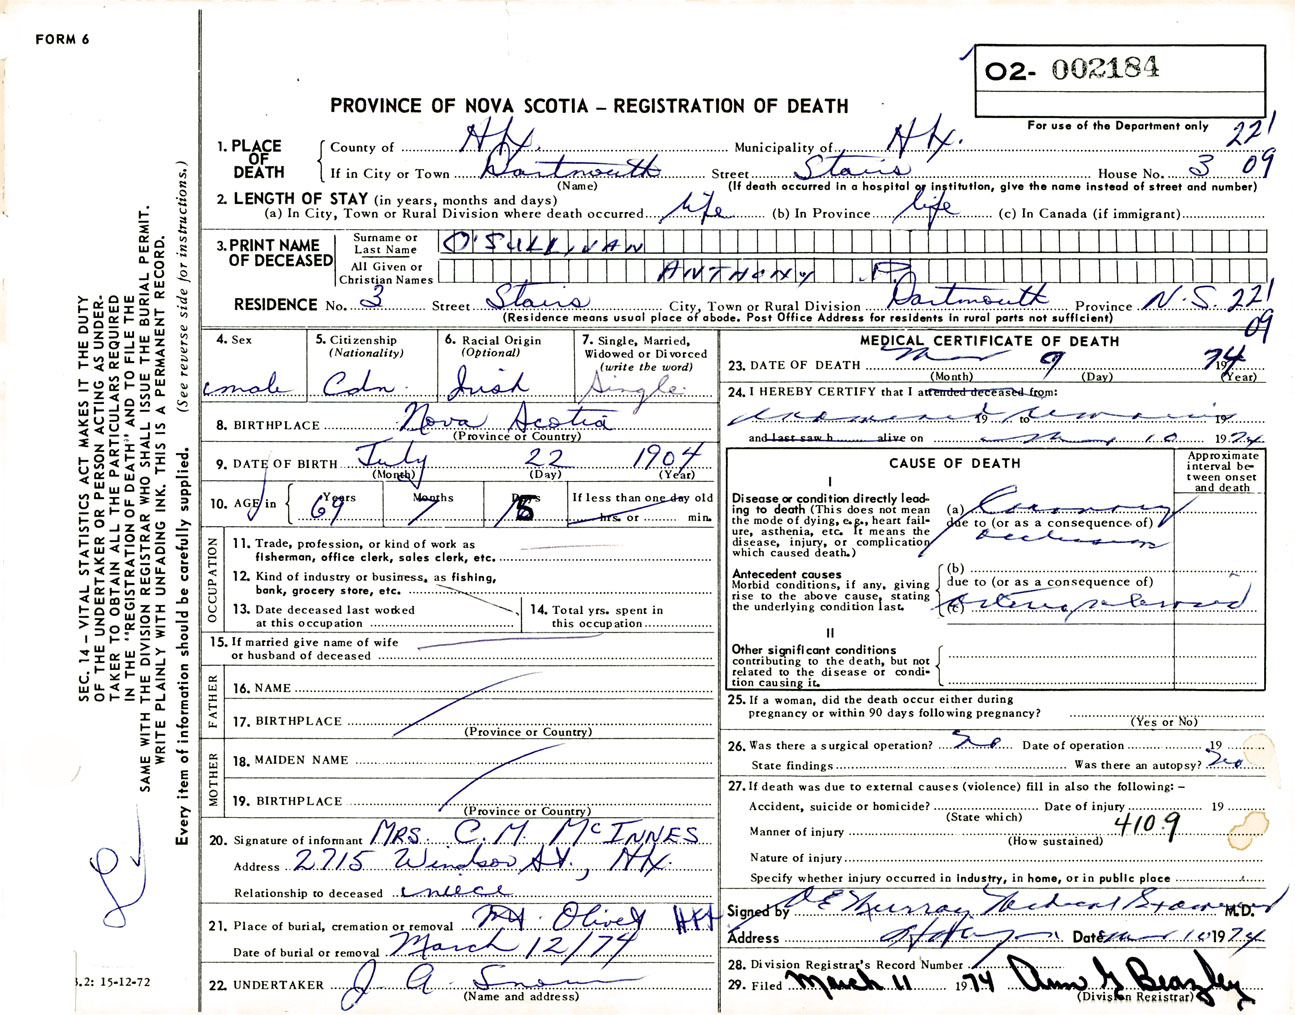 FORM 6
O2- 002184
PROVINCE OF NOVA SCOTIA – REGISTRATION OF DEATH
For use of the Department only
221
1. PLACE OF DEATH
County of Hfx. Municipality of Hfx.
If in City or Town Dartmouth Street Stairs House No. 3 09
(Name) (If death occurred in a hospital or institution, give the name instead of street and number)
2. LENGTH OF STAY (in years, months and days)
(a) In City, Town or Rural Division where death occurred life (b) In Province life (c) In Canada (if immigrant)
3. PRINT NAME OF DECEASED
Surname or Last Name O'SULLIVAN
All Given or Christian Names ANTHONY P.
RESIDENCE No. 3 Street Stairs City, Town or Rural Division Dartmouth Province N.S. 221
(Residence means usual place of abode. Post Office Address for residents in rural parts not sufficient)
09
4. Sex
male
5. Citizenship
(Nationality)
Cdn.
6. Racial Origin
(Optional)
Irish
7. Single, Married,
Widowed or Divorced
(write the word)
Single
8. BIRTHPLACE Nova Scotia
(Province or Country)
9. DATE OF BIRTH July 22 1904
(Month) (Day) (Year)
10. AGE in
Years Months Days If less than one day old
69 7 hrs. or min.
OCCUPATION
11. Trade, profession, or kind of work as
fisherman, office clerk, sales clerk, etc.
12. Kind of industry or business, as fishing,
bank, grocery store, etc.
13. Date deceased last worked
at this occupation
14. Total yrs. spent in
this occupation
15. If married give name of wife
or husband of deceased
FATHER
16. NAME
17. BIRTHPLACE
(Province or Country)
MOTHER
18. MAIDEN NAME
19. BIRTHPLACE
(Province or Country)
20. Signature of informant MRS. C.M. McINNES
Address 2715 Windsor St., Hfx.
Relationship to deceased niece
21. Place of burial, cremation or removal Mt. Olivet Hfx
Date of burial or removal March 12/74
22. UNDERTAKER J. A. Snow
(Name and address)
MEDICAL CERTIFICATE OF DEATH
23. DATE OF DEATH Mar 9 1974
(Month) (Day) (Year)
24. I HEREBY CERTIFY that I attended deceased from:
examined remains 19 to 19
and last saw h alive on Mar 10 1974
CAUSE OF DEATH
Approximate
interval be-
tween onset
and death
I
Disease or condition directly lead-
ing to death (This does not mean
the mode of dying, e.g., heart fail-
ure, asthenia, etc. It means the
disease, injury, or complication
which caused death.)
(a) Coronary
due to (or as a consequence of)
occlusion
Antecedent causes
Morbid conditions, if any, giving
rise to the above cause, stating
the underlying condition last.
(b)
due to (or as a consequence of)
(c)
II
Other significant conditions
contributing to the death, but not
related to the disease or condi-
tion causing it.
25. If a woman, did the death occur either during
pregnancy or within 90 days following pregnancy?
(Yes or No)
26. Was there a surgical operation? No Date of operation 19
State findings Was there an autopsy? No
27. If death was due to external causes (violence) fill in also the following: –
Accident, suicide or homicide? Date of injury 19
(State which)
Manner of injury 410.9
(How sustained)
Nature of injury
Specify whether injury occurred in industry, in home, or in public place
Signed by D E Murray Medical Examiner M.D.
Address Date Mar 10 1974
28. Division Registrar's Record Number
29. Filed March 11 1974 Ann G Beazley
(Division Registrar)
SEC. 14 – VITAL STATISTICS ACT MAKES IT THE DUTY
OF THE UNDERTAKER OR PERSON ACTING AS UNDER-
TAKER TO OBTAIN ALL THE PARTICULARS REQUIRED
IN THE "REGISTRATION OF DEATH" AND TO FILE THE
SAME WITH THE DIVISION REGISTRAR WHO SHALL ISSUE THE BURIAL PERMIT.
WRITE PLAINLY WITH UNFADING INK. THIS IS A PERMANENT RECORD.
Every item of information should be carefully supplied. (See reverse side for instructions.)
.2: 15-12-72